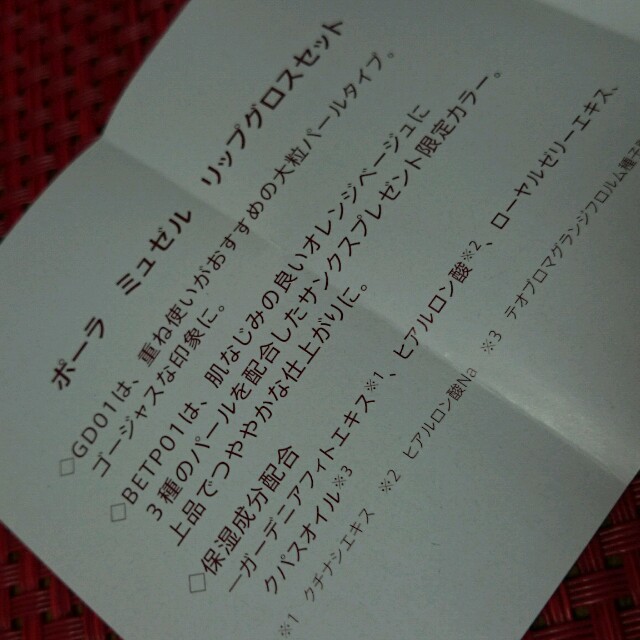 ポーラ　ミュゼル　リップグロスセット
□GD01は、重ね使いがおすすめの大粒パールタイプ。
ゴージャスな印象に。
□BETP01は、肌なじみの良いオレンジベージュに
3種のパールを配合したサンクスプレゼント限定カラー。
上品でつややかな仕上がりに。
□保湿成分配合
ーガーデニアフィトエキス※1、ヒアルロン酸※2、ローヤルゼリーエキス、
クパスオイル※3
※1　クチナシエキス　※2　ヒアルロン酸Na　※3　テオブロマグランジフロルム種子